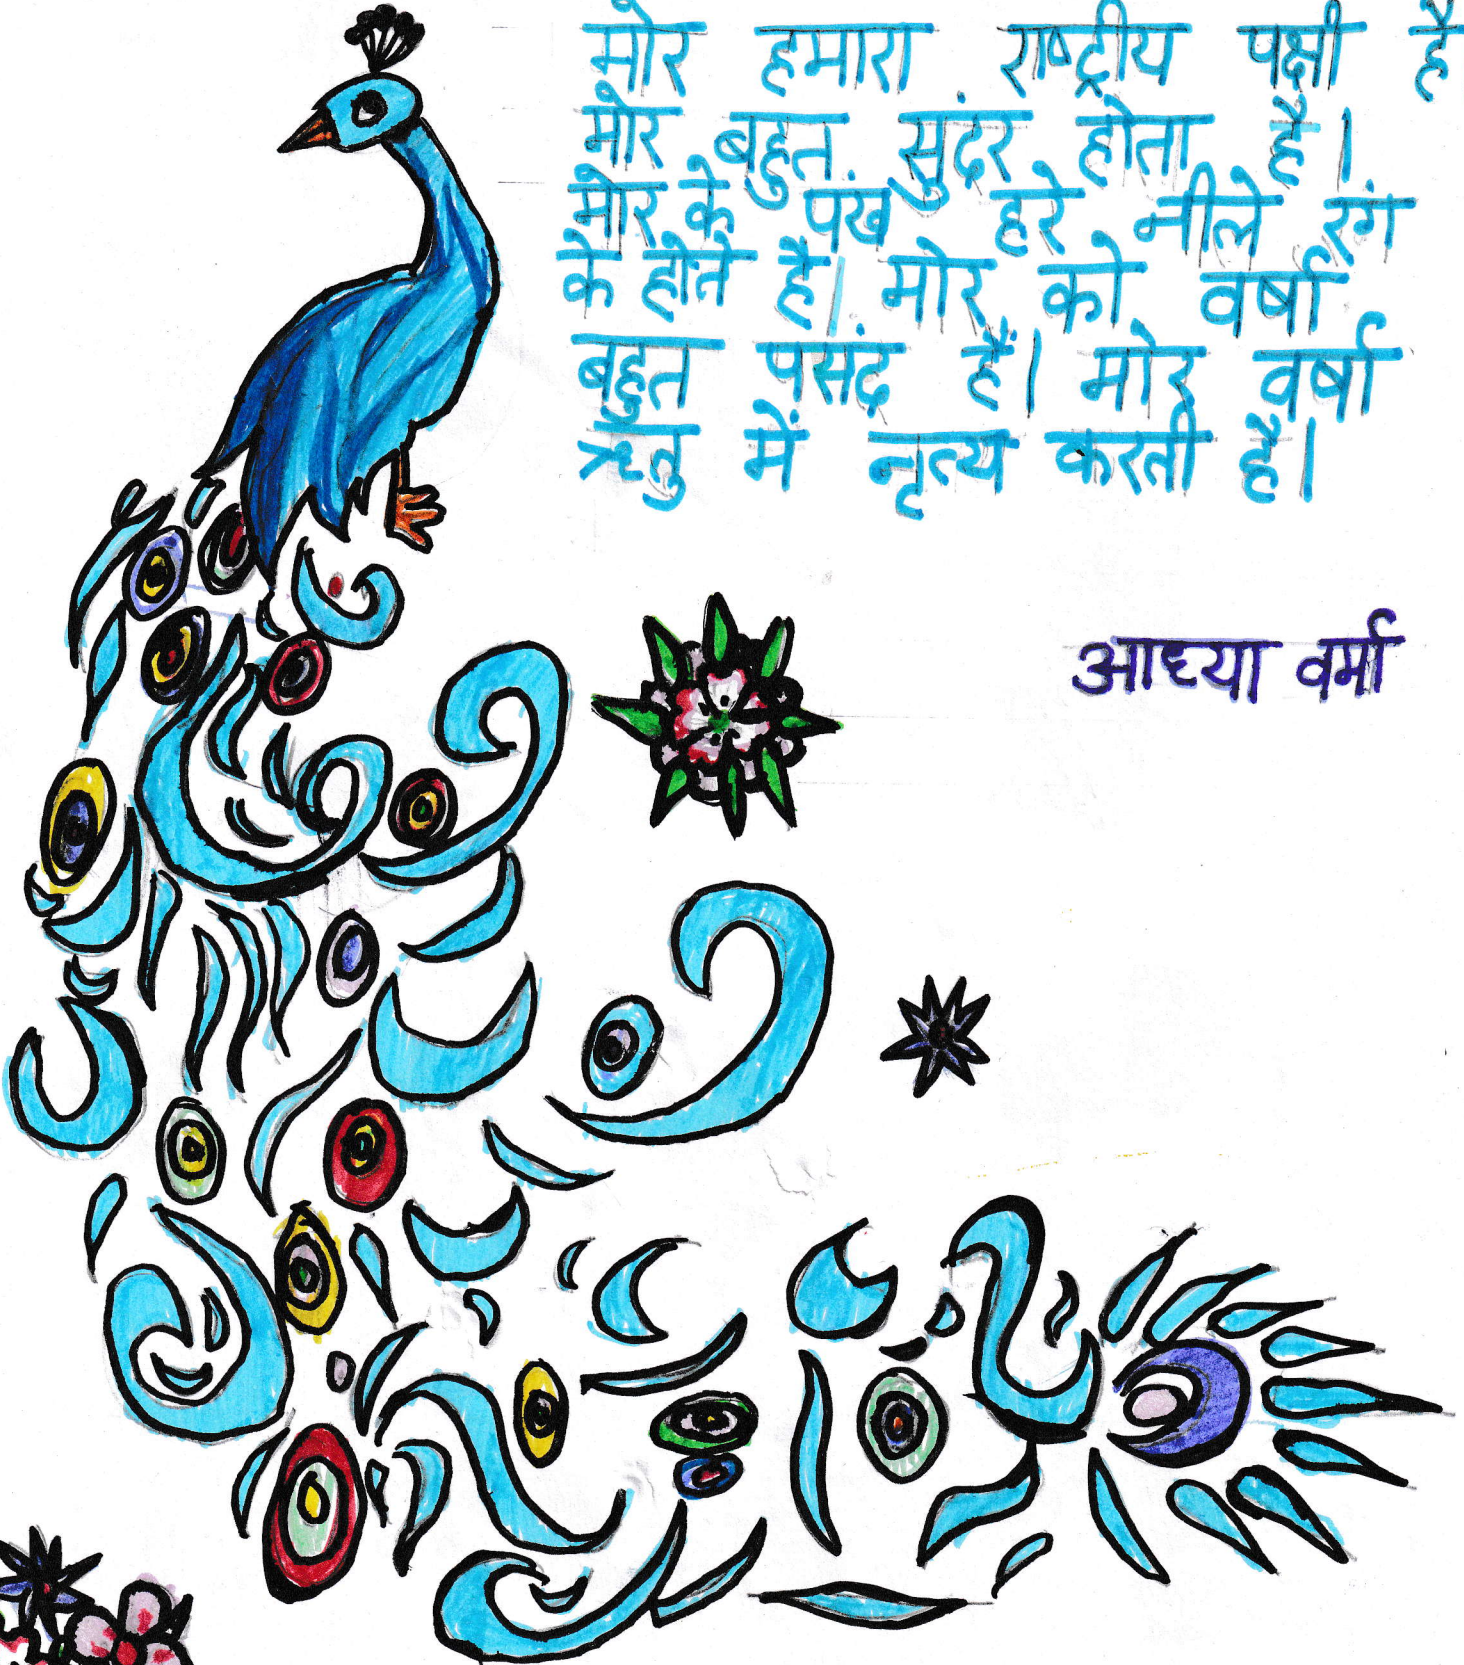 मोर हमारा राष्ट्रीय पक्षी है
मोर बहुत सुंदर होता है।
मोर के पंख हरे नीले रंग
के होते है। मोर को वर्षा
बहुत पसंद हैं। मोर वर्षा
ऋतु में नृत्य करती है।
आध्या वर्मा